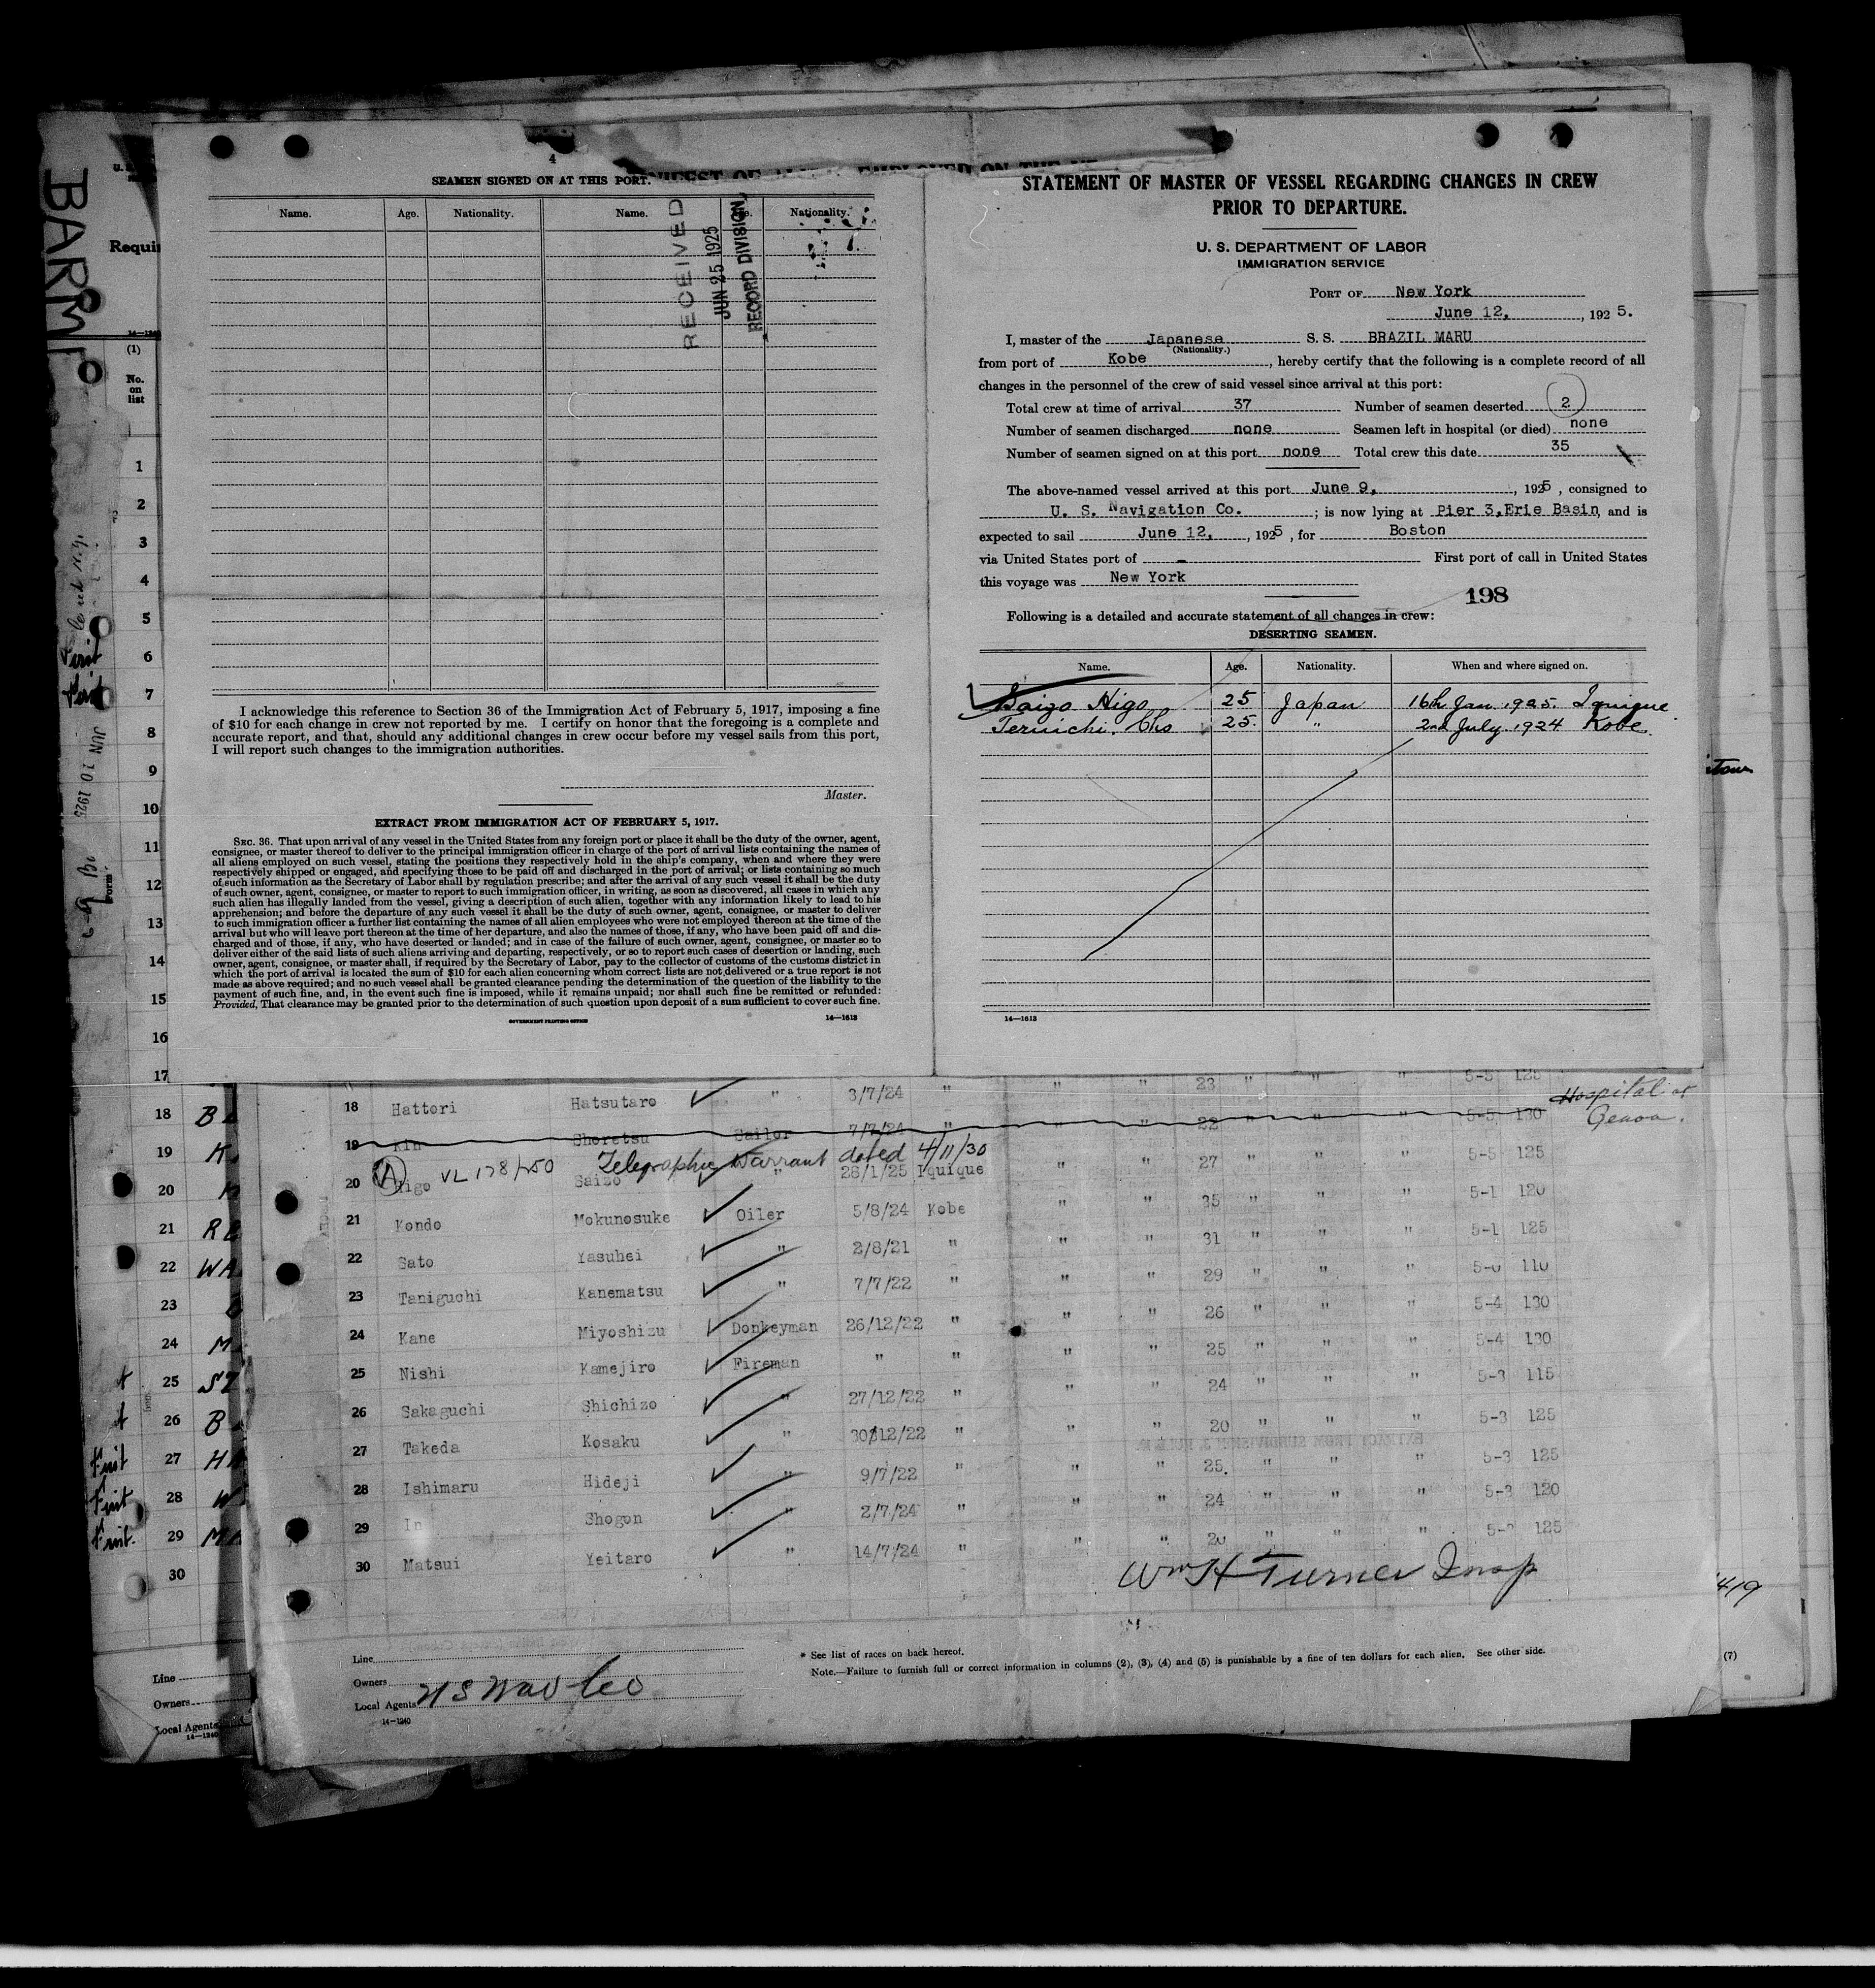 BARM
4
SEAMEN SIGNED ON AT THIS PORT.
Name. Age. Nationality. Name. Age. Nationality.
RECEIVED
JUN 25 1925
RECORD DIVISION
I acknowledge this reference to Section 36 of the Immigration Act of February 5, 1917, imposing a fine
of $10 for each change in crew not reported by me. I certify on honor that the foregoing is a complete and
accurate report, and that, should any additional changes in crew occur before my vessel sails from this port,
I will report such changes to the immigration authorities.
Master.
EXTRACT FROM IMMIGRATION ACT OF FEBRUARY 5, 1917.
SEC. 36. That upon arrival of any vessel in the United States from any foreign port or place it shall be the duty of the owner, agent,
consignee, or master thereof to deliver to the principal immigration officer in charge of the port of arrival lists containing the names of
all aliens employed on such vessel, stating the positions they respectively hold in the ship's company, when and where they were
respectively shipped or engaged, and specifying those to be paid off and discharged in the port of arrival; or lists containing so much
of such information as the Secretary of Labor shall by regulation prescribe; and after the arrival of any such vessel it shall be the duty
of such owner, agent, consignee, or master to report to such immigration officer, in writing, as soon as discovered, all cases in which any
such alien has illegally landed from the vessel, giving a description of such alien, together with any information likely to lead to his
apprehension; and before the departure of any such vessel it shall be the duty of such owner, agent, consignee, or master to deliver
to such immigration officer a further list containing the names of all alien employees who were not employed thereon at the time of the
arrival but who will leave port thereon at the time of her departure, and also the names of those, if any, who have been paid off and dis-
charged and of those, if any, who have deserted or landed; and in case of the failure of such owner, agent, consignee, or master so to
deliver either of the said lists of such aliens arriving and departing, respectively, or so to report such cases of desertion or landing, such
owner, agent, consignee, or master shall, if required by the Secretary of Labor, pay to the collector of customs of the customs district in
which the port of arrival is located the sum of $10 for each alien concerning whom correct lists are not delivered or a true report is not
made as above required; and no such vessel shall be granted clearance pending the determination of the question of the liability to the
payment of such fine, and, in the event such fine is imposed, while it remains unpaid; nor shall such fine be remitted or refunded:
Provided, That clearance may be granted prior to the determination of such question upon deposit of a sum sufficient to cover such fine.
GOVERNMENT PRINTING OFFICE 14—1613
STATEMENT OF MASTER OF VESSEL REGARDING CHANGES IN CREW
PRIOR TO DEPARTURE.
U. S. DEPARTMENT OF LABOR
IMMIGRATION SERVICE
PORT OF New York
June 12, , 192 5.
I, master of the Japanese S. S. BRAZIL MARU
(Nationality.)
from port of Kobe , hereby certify that the following is a complete record of all
changes in the personnel of the crew of said vessel since arrival at this port:
Total crew at time of arrival 37 Number of seamen deserted 2
Number of seamen discharged none Seamen left in hospital (or died) none
Number of seamen signed on at this port none Total crew this date 35
The above-named vessel arrived at this port June 9, , 1925 , consigned to
U. S. Navigation Co. ; is now lying at Pier 3,Erie Basin, and is
expected to sail June 12, , 1925 , for Boston
via United States port of - First port of call in United States
this voyage was New York
198
Following is a detailed and accurate statement of all changes in crew:
DESERTING SEAMEN.
Name. Age. Nationality. When and where signed on.
Saizo Higo 25 Japan 16th Jan. 1925. Iquique
Teruichi. Cho 25. " 2nd July. 1924 Kobe.
14—1613
Requi
(1)
No.
on
list
1
2
3
4
5
Visit 6
Visit 7
8
JUN 10 1925
9
10
11
12
13
14
15
16
17
18 B
19 K
20
21 R
22 WA
23
24 M
25
26 B
Visit 27 H
Visit 28 W
Visit. 29 M
30
Line
Owners
Local Agents
14—1240
" 23 " " " 5-5 125
18 Hattori Hatsutaro " 3/7/24 " " " 22 " " " 5-5 130 Hospital at
Genoa.
19 Kin Shoretsu Sailor 7/7/24 " " " 27 " " " 5-5 125
A VL 178/250 Telegraphic Warrant dated 4/11/30
20 Higo Saizo " 28/1/25 Iquique " " 35 " " " 5-1 120
21 Kondo Mokunosuke Oiler 5/8/24 Kobe " " 31 " " " 5-1 125
22 Sato Yasuhei " 2/8/21 " " " 29 " " " 5-0 110
23 Taniguchi Kanematsu " 7/7/22 " " " 26 " " " 5-4 130
24 Kane Miyoshizu Donkeyman 26/12/22 " " " 25 " " " 5-4 130
25 Nishi Kamejiro Fireman " " " " 24 " " " 5-3 115
26 Sakaguchi Shichizo " 27/12/22 " " " 20 " " " 5-3 125
27 Takeda Kosaku " 30/12/22 " " " 25. " " " 5-3 125
28 Ishimaru Hideji " 9/7/22 " " " 24 " " " 5-3 120
29 In Shogon " 2/7/24 " " " 20 " " " 125
30 Matsui Yeitaro " 14/7/24 "
Wm H Turner Insp
Line
Owners
Local Agents U S Nav Co
14—1240
* See list of races on back hereof.
Note.—Failure to furnish full or correct information in columns (2), (3), (4) and (5) is punishable by a fine of ten dollars for each alien. See other side.
(7)